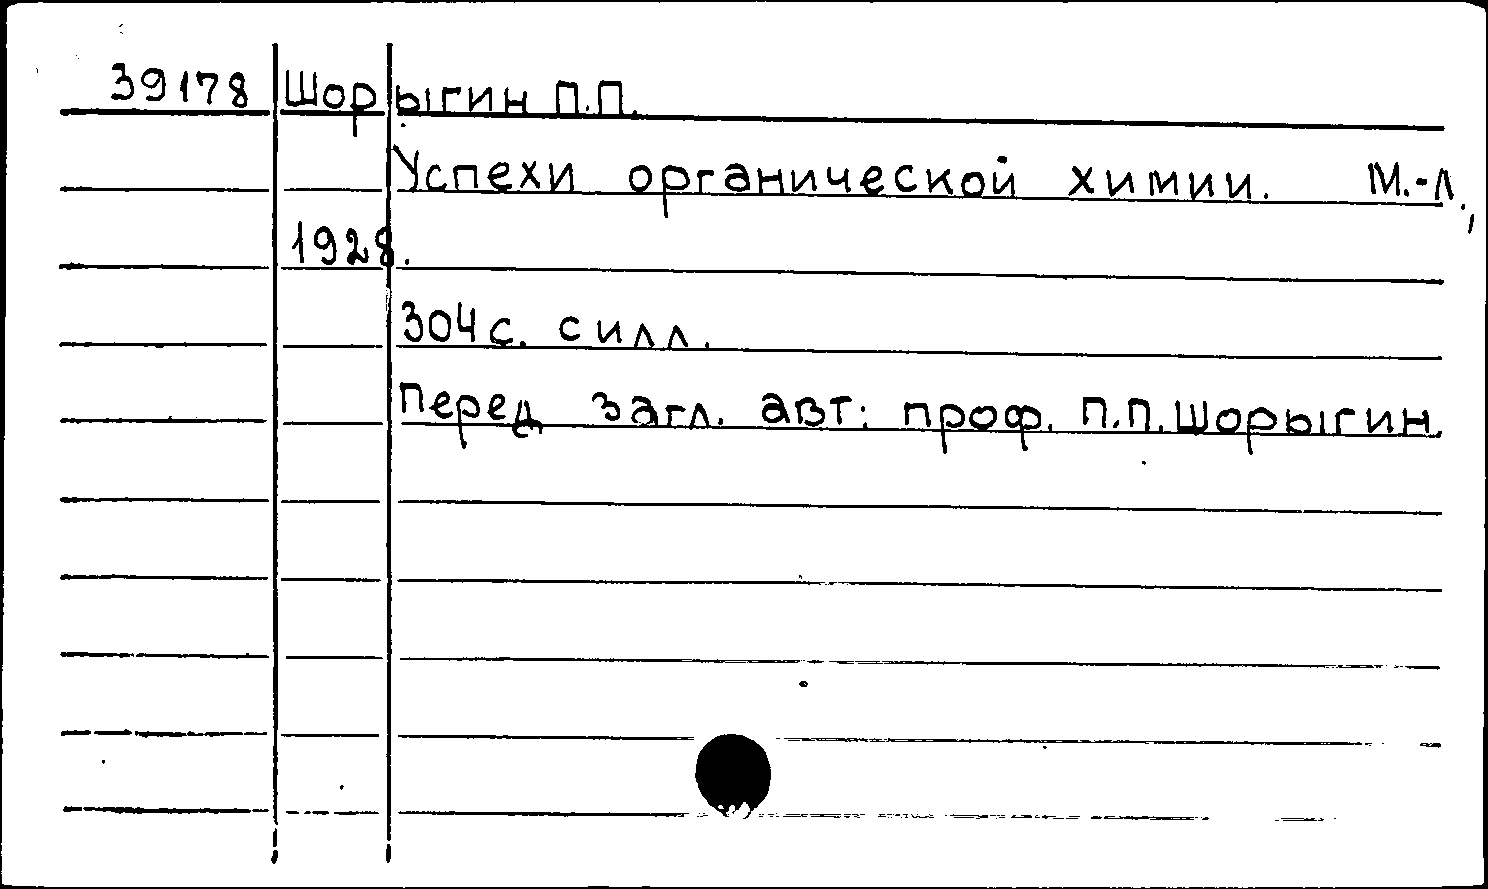 39178 Шорыгин П.П.
Успехи органической химии. М.-Л.,
1928.
304 с. с илл.
Перед загл. авт: проф. П.П. Шорыгин.